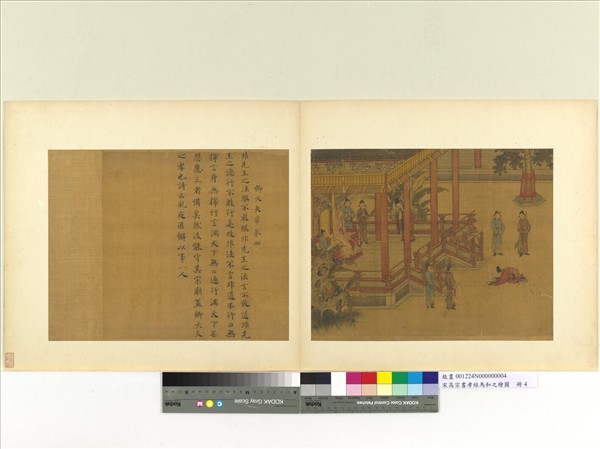 卿大夫章第四
非先王之法服不敢服非先王之法言不敢道非先
王之德行不敢行是故非法不言非道不行口無
擇言身無擇行言滿天下無口過行滿天下無
怨惡三者備矣然後能守其宗廟蓋卿大夫
之孝也詩云夙夜匪懈以事一人
故畫 001224N000000004
宋高宗書孝經馬和之繪圖 冊 4
Kodak
KODAK Gray Scale
C M Y
KODAK Color Control Patches